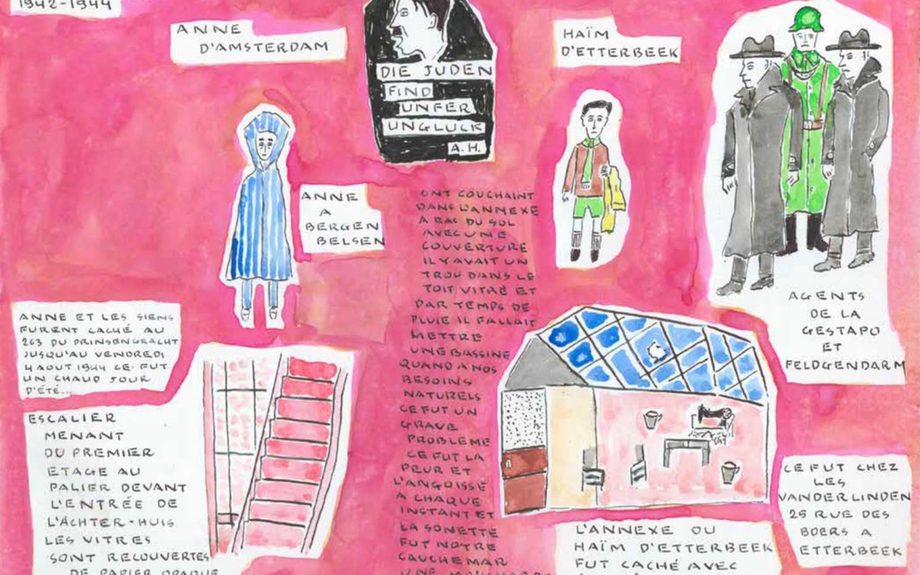 1942-1944
ANNE
D'AMSTERDAM
DIE JUDEN
FIND
UNFER
UNGLUCK
A.H.
HAÏM
D'ETTERBEEK
ANNE
A
BERGEN
BELSEN
ONT COUCHAINT
DANS L'ANNEXE
A RAS DU SOL
AVEC UNE
COUVERTURE
IL Y AVAIT UN
TROU DANS LE
TOIT VITRÉ ET
PAR TEMPS DE
PLUIE IL FALLAIT
METTRE
UNE BASSINE
QUAND A NOS
BESOINS
NATURELS
CE FUT UN
GRAVE
PROBLEME
CE FUT LA
PEUR ET
L'ANGOISSE
A CHAQUE
INSTANT ET
LA SONETTE
FUT NOTRE
CAUCHEMAR
AGENTS
DE LA
GESTAPO
ET
FELDGENDARM
ANNE ET LES SIENS
FURENT CACHÉ AU
263 DU PRINSENGRACHT
JUSQU'AU VENDREDI
4 AOUT 1944 CE FUT
UN CHAUD JOUR
D'ÉTÉ...
ESCALIER
MENANT
DU PREMIER
ETAGE AU
PALIER DEVANT
L'ENTRÉE DE
L'ACHTER-HUIS
LES VITRES
SONT RECOUVERTES
DE PAPIER OPAQUE
CE FUT CHEZ
LES
VANDERLINDEN
25 RUE DES
BOERS A
ETTERBEEK
L'ANNEXE OU
HAÏM D'ETTERBEEK
FUT CACHÉ AVEC